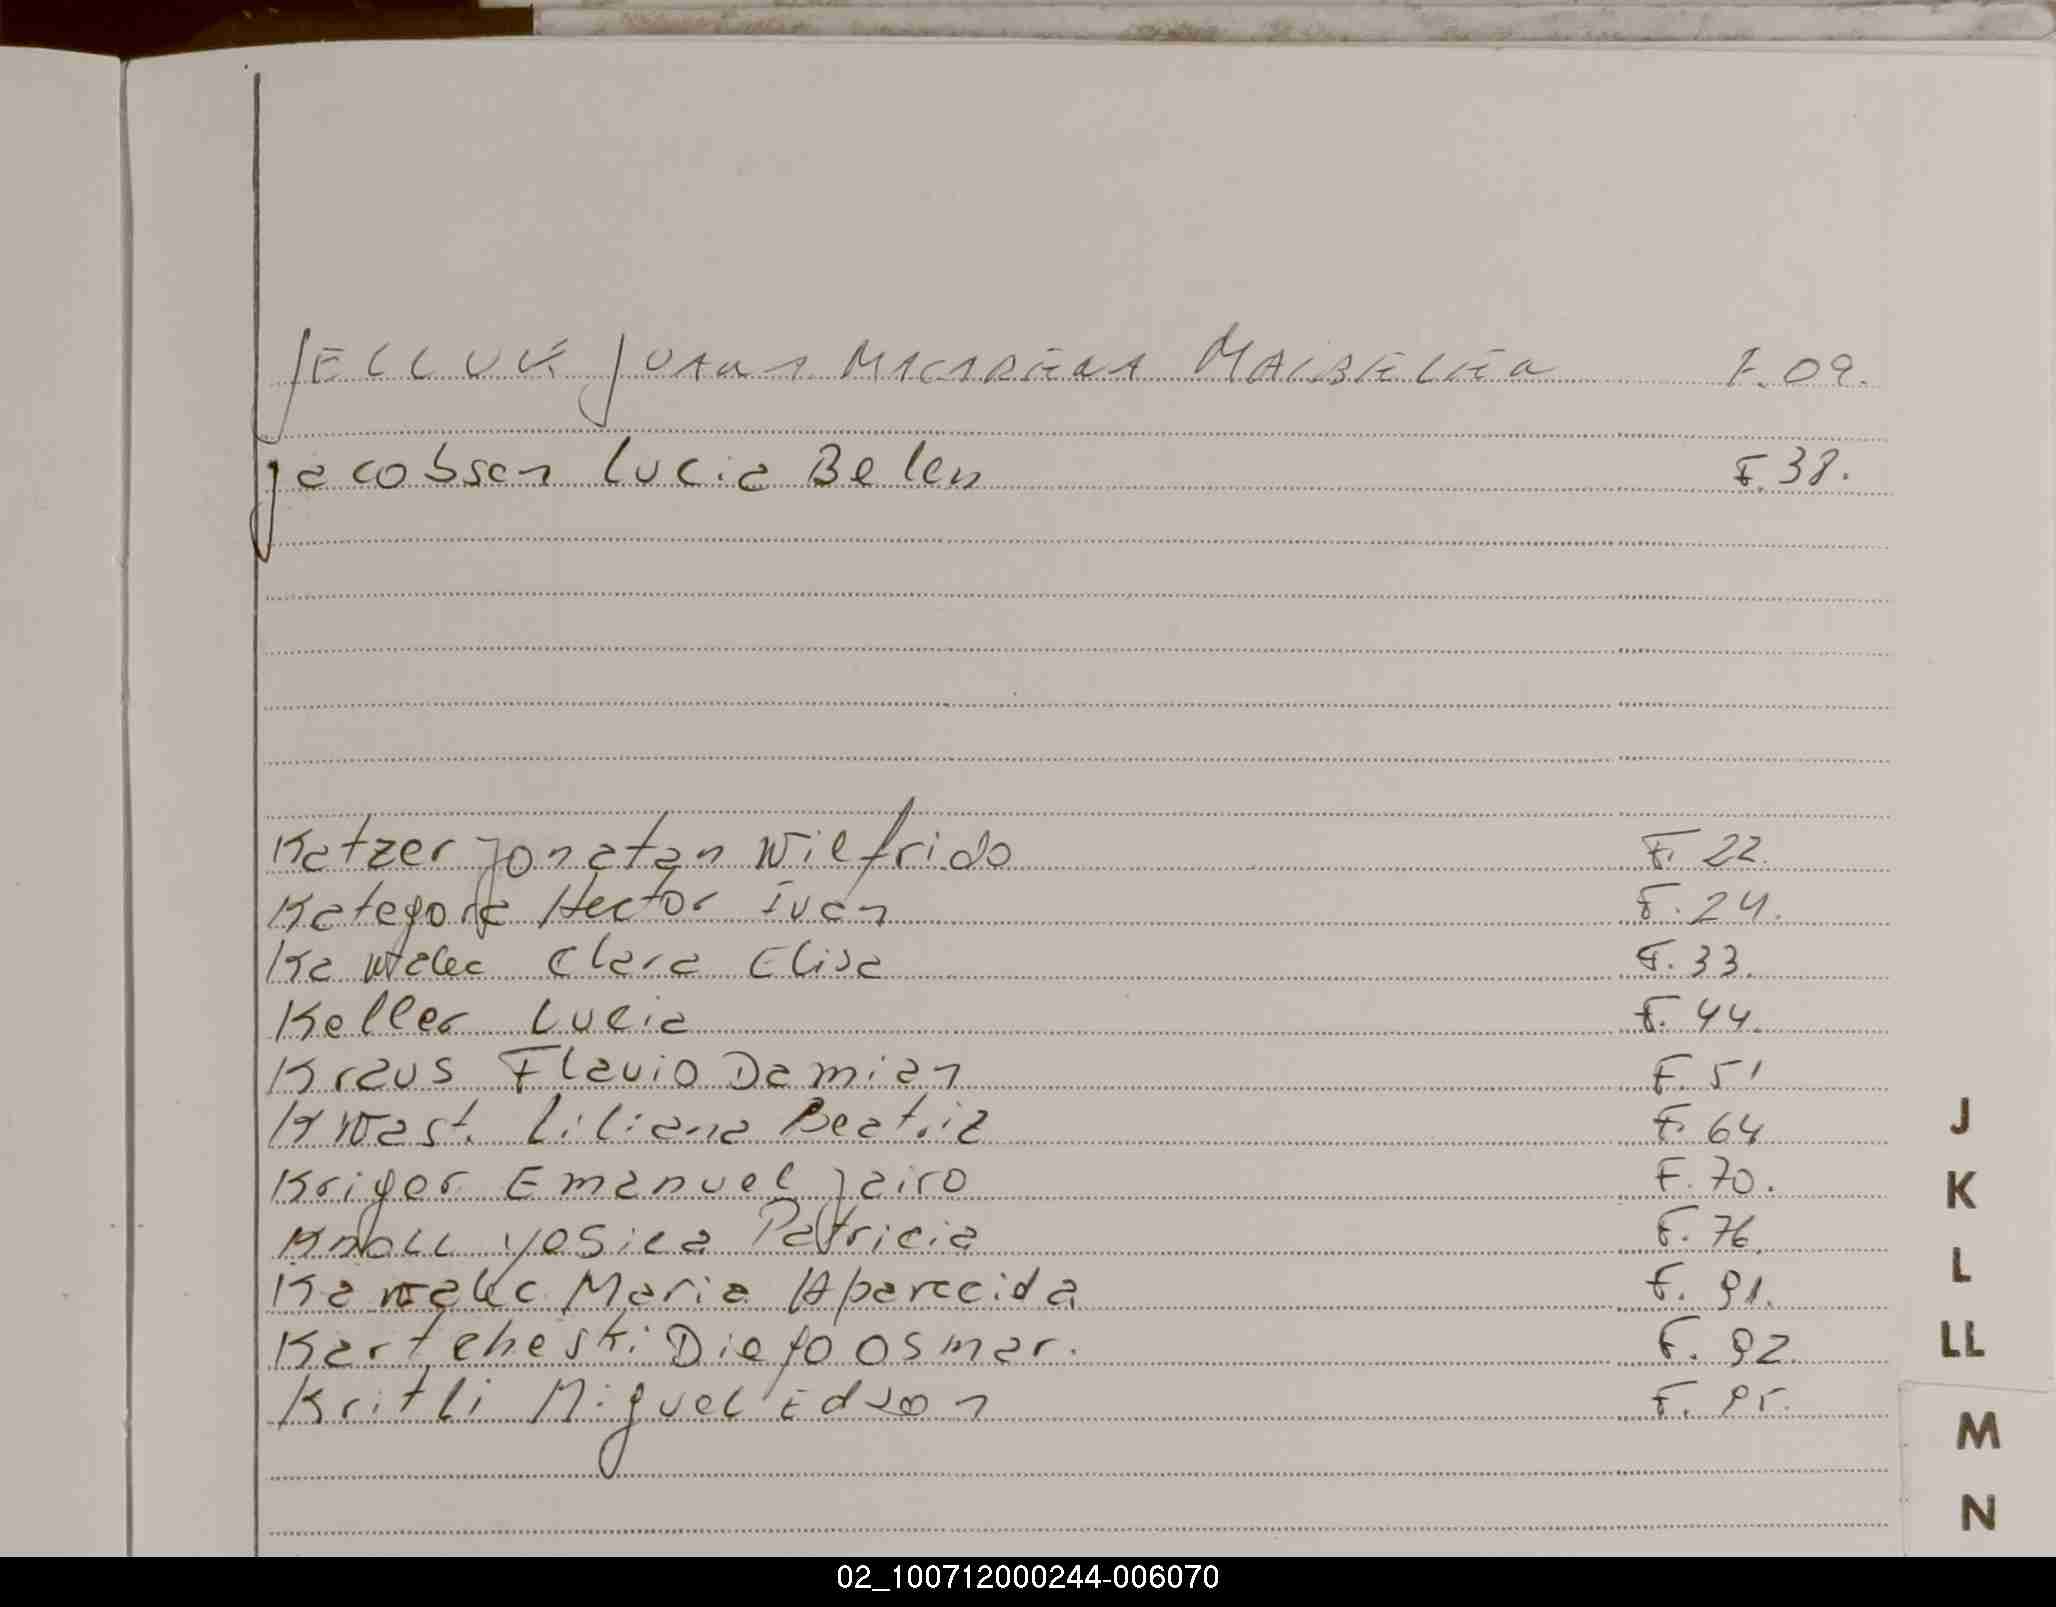 JELLUK JUANA MACARENA F. 09.
Jacobsen Lucia Belen F. 38.
Katzer Jonatan Wilfrido F. 22.
Kategora Hector Ivan F. 24.
Kawalec Clara Elisa F. 33.
Keller Lucia F. 44.
Kraus Flavio Damian F. 51
Kwast. Liliana Beatriz F. 64
Kriger Emanuel Jairo F. 70.
Knoll Yesica Patricia F. 76.
Kawalec Maria Aparecida F. 91.
Kartcheski Diego Osmar. F. 92.
Kritli Miguel Edson F. 95.
J
K
L
LL
M
N
02_100712000244-006070